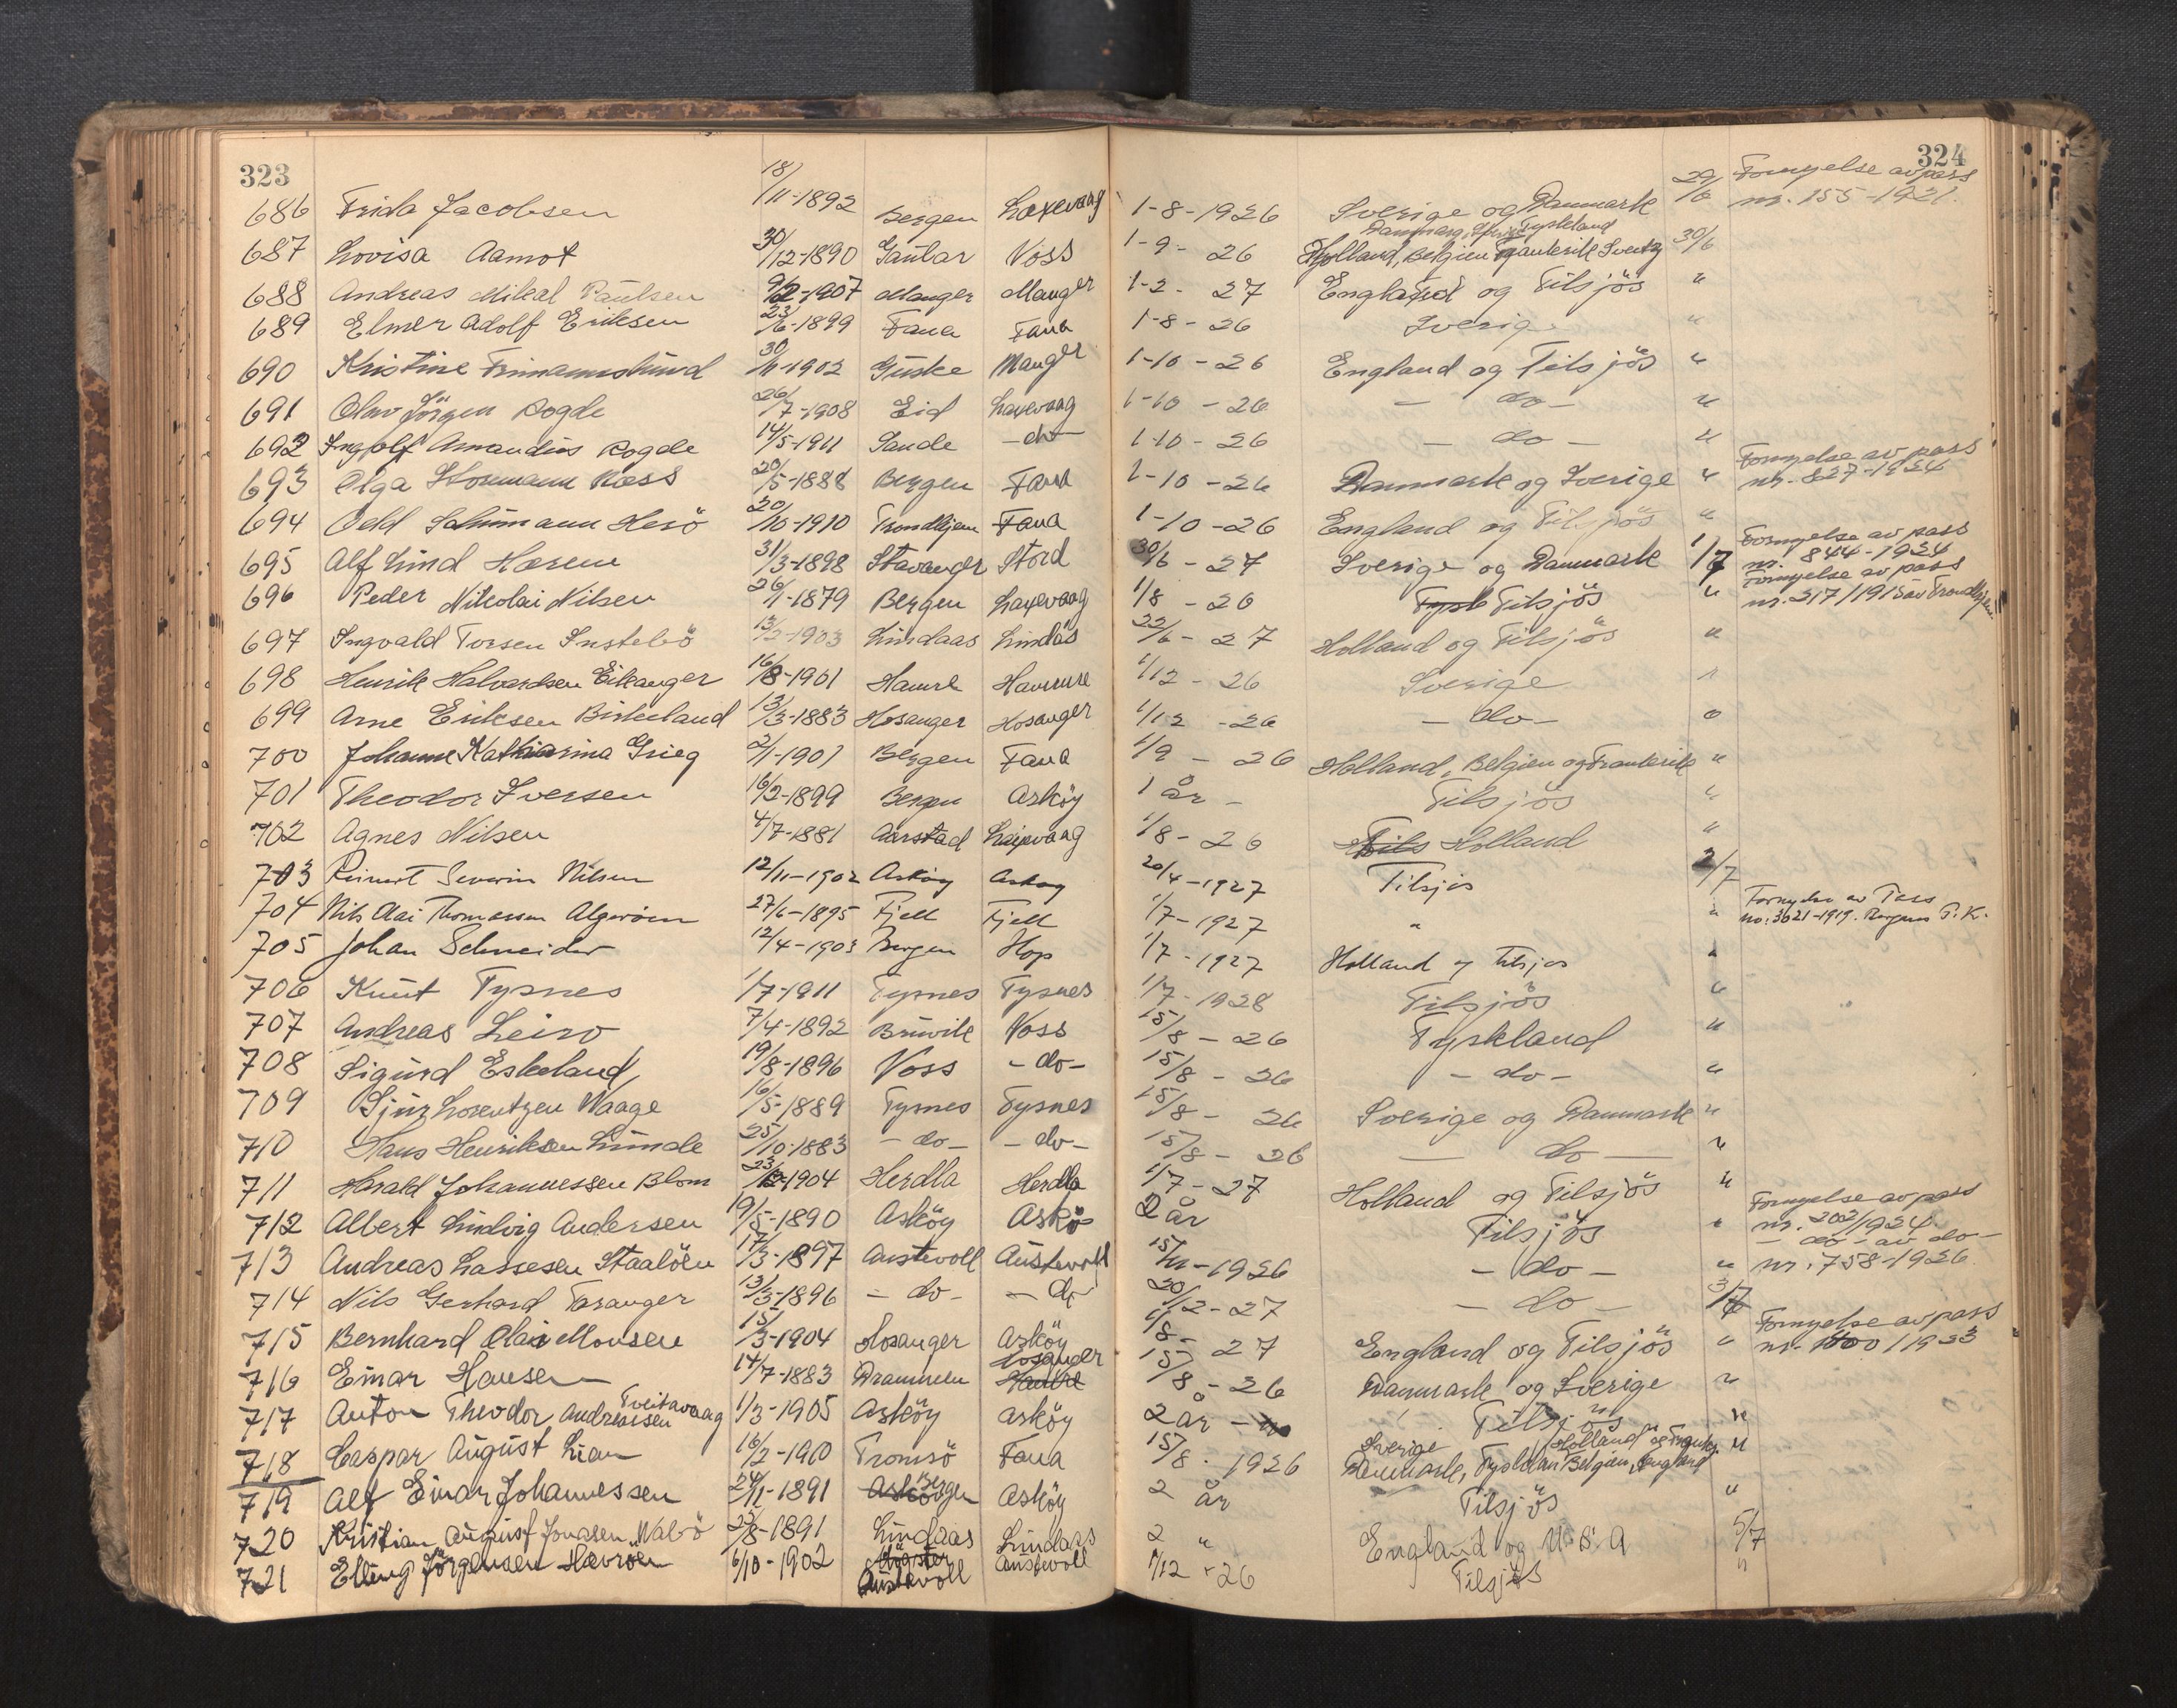 323
324
686 Frida Jacobsen 18/11-1892 Bergen Laxevaag 1-8-1926 Sverige og Danmark 29/6 Fornyelse av pass nr. 155-1921.
687 Lovisa Aamot 30/12-1890 Gaular Voss 1-9-26 Danmark, Tyskland Holland, Belgien Frankrik Sveitz 30/6
688 Andreas Mikal Paulsen 9/2-1907 Manger Manger 1-2-27 England og Tilsjös "
689 Elmer Adolf Eriksen 23/6-1899 Fana Fana 1-8-26 Sverige "
690 Kristine 30/11-1902 Giske Manger 1-10-26 England og Tilsjös "
691 Olav Jörgen Rogde 26/7-1908 Eid Laxevaag 1-10-26 - do - "
692 Ingolf Amandus Rogde 14/5-1911 Sande - do - 1-10-26 - do - "
693 Olga Næss 20/5-1888 Bergen Fana 1-10-26 Danmark og Sverige " Fornyelse av pass nr. 827-1924
694 Odd Schümann Herö 20/10-1910 Trondhjem Fana 1-10-26 England og Tilsjös "
695 Alf Lind Hærem 31/3-1898 Stavanger Stord 30/6-27 Sverige og Danmark 1/7 Fornyelse av pass nr. 844-1924
696 Peder Nikolai Nilsen 26/1-1879 Bergen Laxevaag 1/8-26 Tysk Tilsjös " Fornyelse av pass nr. 217/1915 av Trondhjem
697 Ingvald Torsen Instebö 13/2-1903 Lindaas Lindås 22/6-27 Holland og Tilsjös "
698 Henrik Halvardsen Eikanger 16/8-1901 Hamre Hammre 1/12-26 Sverige "
699 Arne Eriksen Birkeland 13/3-1883 Hosanger Hosanger 1/12-26 - do - "
700 Johanne Katharina Grieg 2/1-1901 Bergen Fana 1/9-26 Holland, Belgien og Frankrik "
701 Theodor Iversen 16/2-1899 Bergen Asköy 1 år - Tilsjös "
702 Agnes Nilsen 4/7-1881 Aarstad Laxevaag 1/8-26 Tils Holland "
703 Reinert Severin Nilsen 12/11-1902 Asköy Asköy 20/4-1927 Tilsjös 2/7
704 Nils Olai Thomassen Algeröen 27/6-1895 Fjell Fjell 1/7-1927 " " Fornyelse av Pass no: 3021-1919. Bergens P.K.
705 Johan Schneider 12/4-1903 Bergen Hop 1/7-1927 Holland og tilsjos "
706 Knut Tysnes 1/7-1911 Tysnes Tysnes 1/7-1928 Tilsjös "
707 Andreas Leiro 7/4-1892 Bruvik Voss 15/8-26 Tyskland "
708 Sigurd Eskeland 19/8-1896 Voss - do - 15/8-26 - do - "
709 Sjur Lorentzen Waage 16/5-1889 Tysnes Tysnes 15/8-26 Sverige og Danmark "
710 Hans Henriksen Lunde 25/10-1883 - do - - do - 15/8-26 - do - "
711 Harald Johannessen Blom 23/12-1904 Herdla Herdla 1/7-27 Holland og Tilsjös "
712 Albert Ludvig Andersen 19/5-1890 Asköy Askö 2 år Tilsjös " Fornyelse av pass nr. 202/1924
713 Andreas Lassesen Staalöen 17/3-1897 Austevoll Austevoll 15/11-1926 - do - " - do - av do - nr. 758-1926
714 Nils Gerhard Taranger 13/3-1896 - do - - do - 20/12-27 - do - 3/7
715 Bernhard Olai Monsen 15/3-1904 Hosanger Asköy 1/8-27 England og Tilsjös " Fornyelse av pass nr. 1600/1923
716 Einar Hansen 14/7-1883 Drammen Hosanger Hamre 15/8-26 Danmark og Sverige "
717 Anton Theodor Andreassen Tveitavaag 1/3-1905 Asköy Asköy 2 år - Tilsjös "
718 Caspar August Lian 16/2-1900 Tromsö Fana 15/8-1926 Sverige Holland og Frankr. Danmark, Tyskland Belgien, England "
719 Alf Einar Johannessen 24/11-1891 Askö Bergen Asköy 2 år Tilsjös "
720 Kristian August Jonasen Nabö 23/8-1891 Lindaas Lindaas 2 " England og U.S.A 5/7
721 Elling Jörgensen Hevröen 6/10-1902 Austevoll Austevoll 1/12-26 Tilsjös "